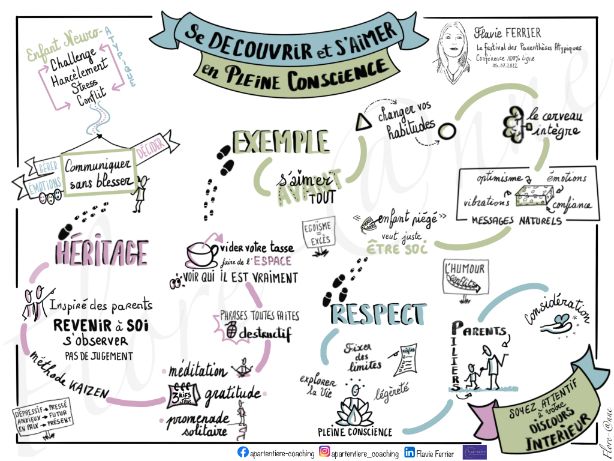 Se DECOUVRIR et S'AIMER
en PLEINE CONSCIENCE
Flavie FERRIER
Le festival des Parenthèses Atypiques
Conférence 100% ligne
Enfant Neuro-
Atypique
Challenge
Harcèlement
Stress
Conflit
GÉRER
ÉMOTIONS
DÉCIDER
Communiquer
sans blesser
HÉRITAGE
Inspiré des parents
REVENIR à SOI
s'observer
PAS DE JUGEMENT
méthode KAIZEN
DÉPRESSIF → PASSÉ
ANXIEUX → FUTUR
EN PAIX → PRÉSENT
méditation
3 KIFS
gratitude
promenade
solitaire
PHRASES TOUTES FAITES
destructif
videz votre tasse
faire de l'ESPACE
VOIR QUI IL EST VRAIMENT
EXEMPLE
s'aimer
AVANT
TOUT
changer vos
habitudes
le cerveau
intègre
optimisme
émotions
vibrations
confiance
MESSAGES NATURELS
enfant piégé
veut juste
ÊTRE SOI
EGOÏSME
=
EXCÈS
RESPECT
Fixer
des
limites
explorer
la Vie
légèreté
PLEINE CONSCIENCE
L'HUMOUR
PARENTS
PILIERS
Considération
SOYEZ ATTENTIF
à votre
DISCOURS
INTÉRIEUR
apartentiere-coaching
apartentiere_coaching
Flavie Ferrier
Flore-Anne